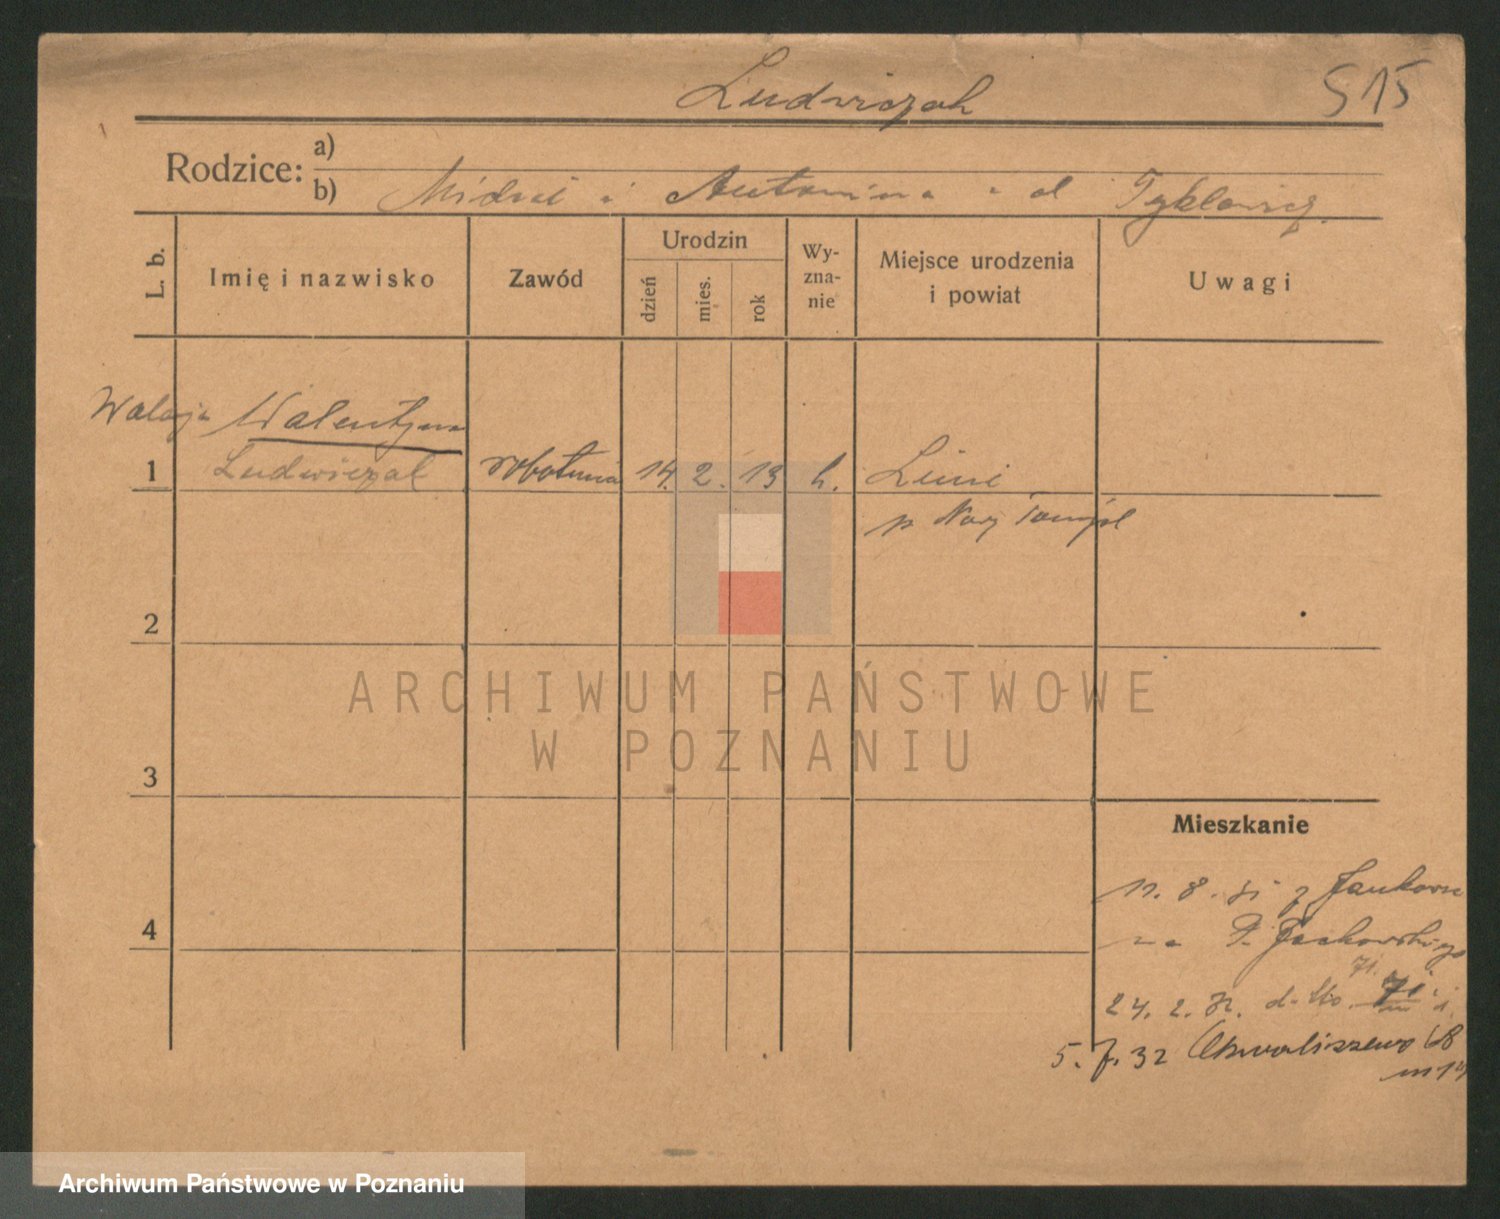 Ludwiczak
S 15
Rodzice: a)
b) Michał i Antonina
L. b.
Imię i nazwisko
Zawód
Urodzin
dzień
mies.
rok
Wy-
zna-
nie
Miejsce urodzenia
i powiat
Uwagi
Walentyna
1 Ludwiczak robotnica 14. 2. 13 k.
p Nowy Tomyśl
2
ARCHIWUM PAŃSTWOWE
W POZNANIU
3
Mieszkanie
8. 31 z Jankowa
4
na P. Jackowskiego
24. 2. 32. dto. 71
5. 7. 32 Chwaliszewo 68
m 14
Archiwum Państwowe w Poznaniu